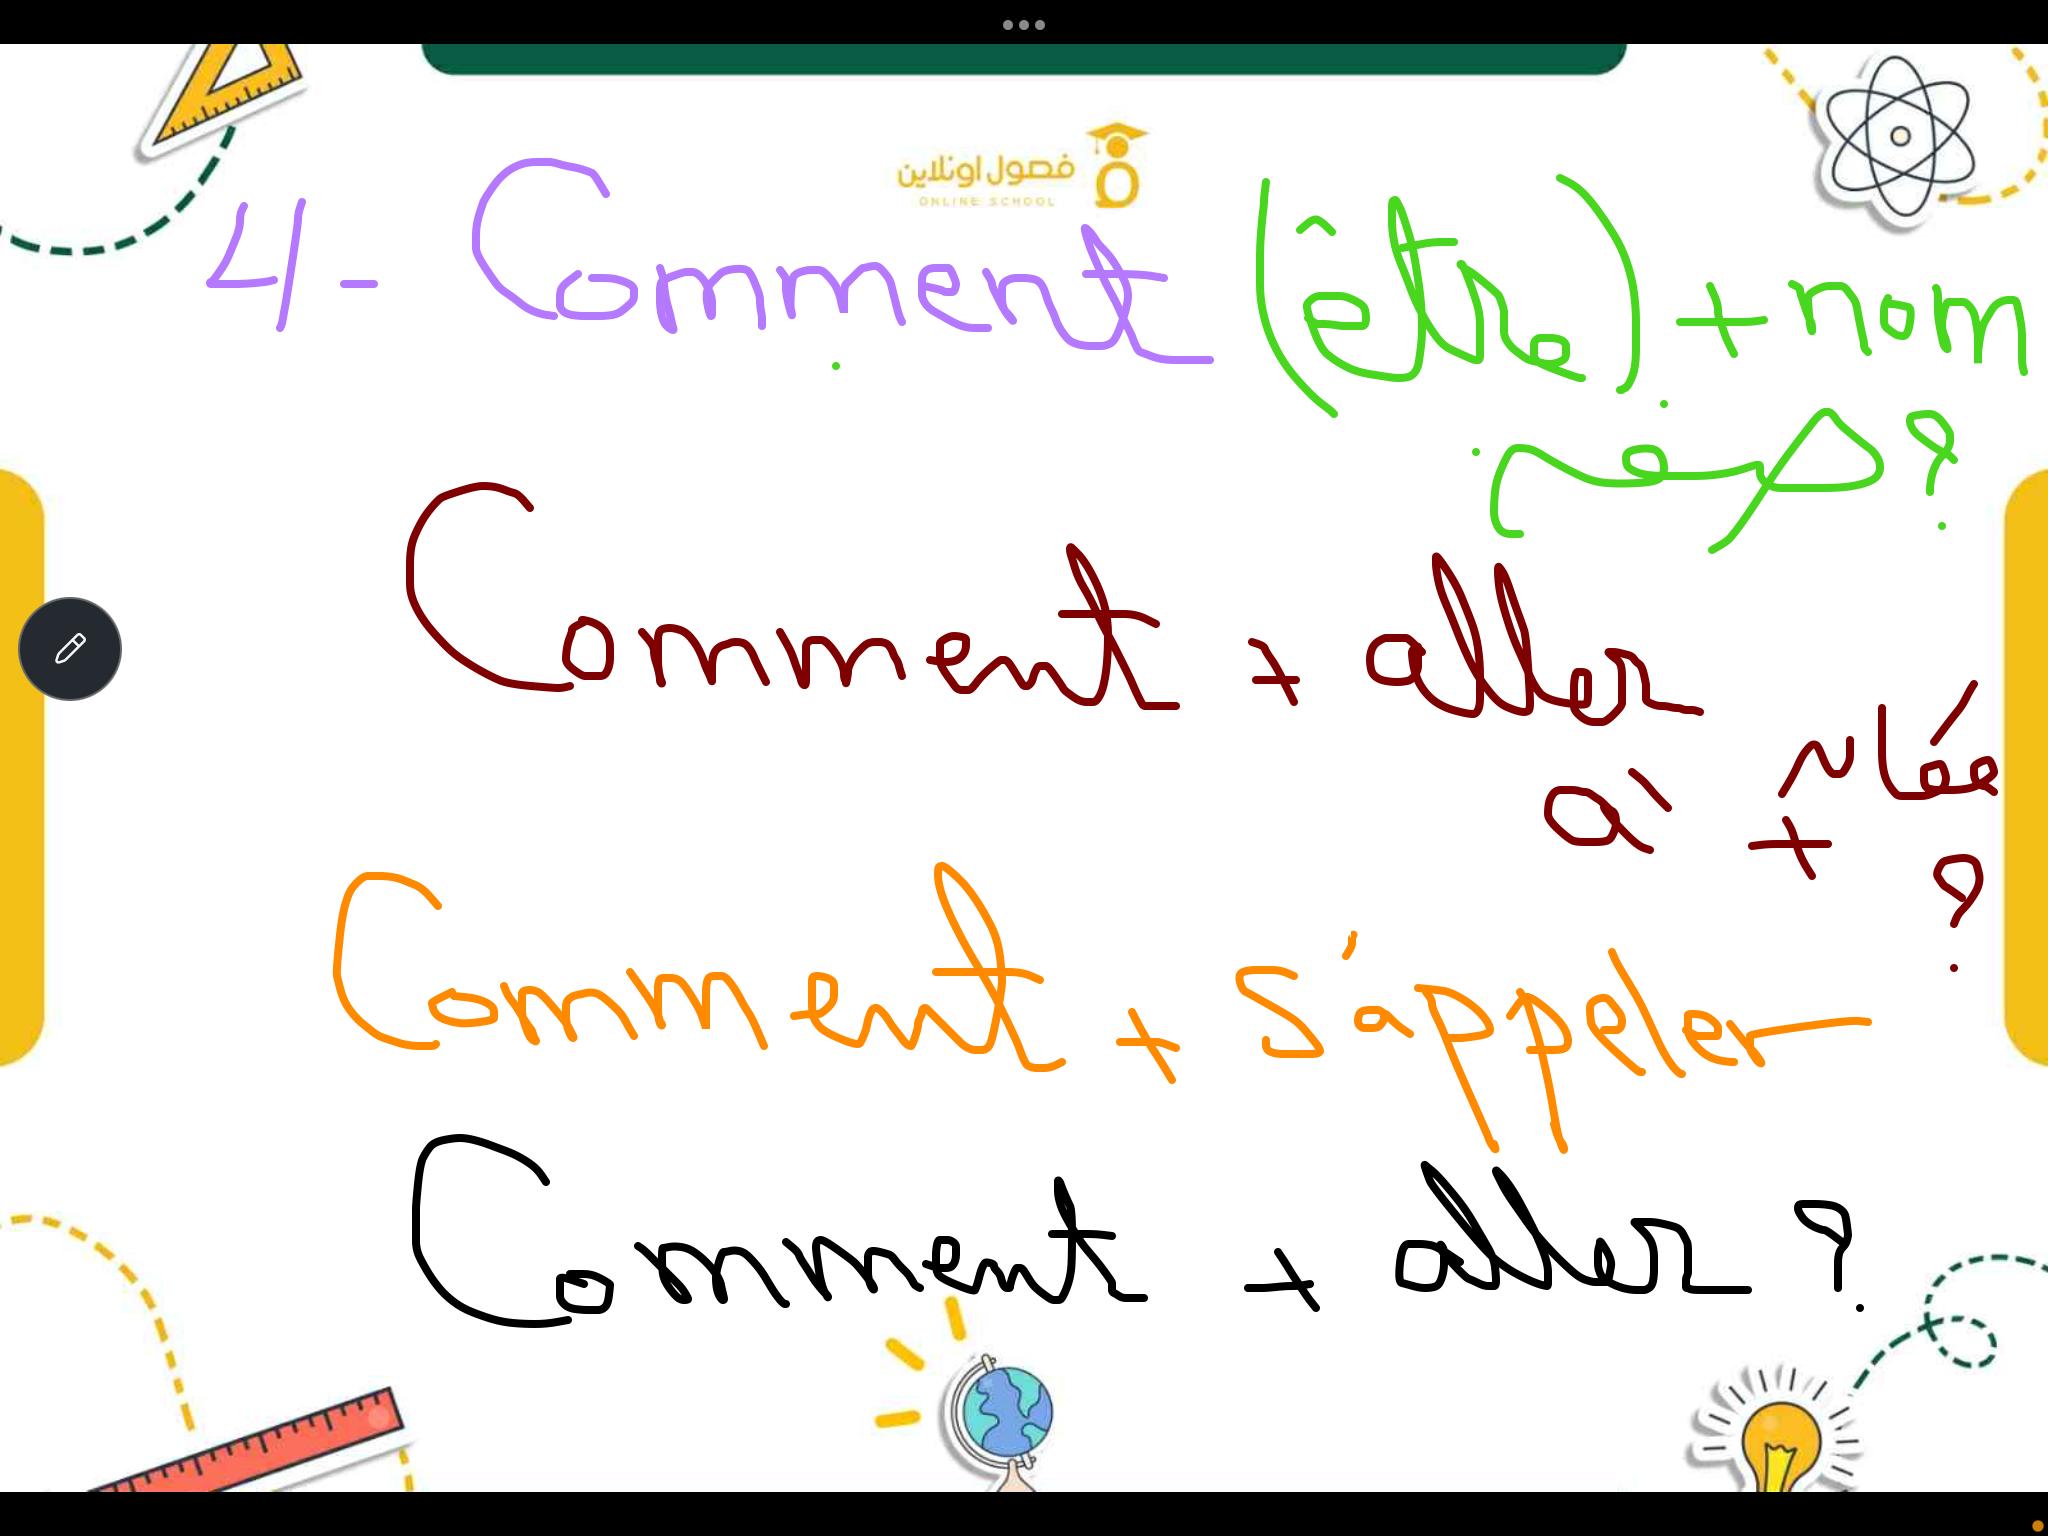 فصول اونلاين
ONLINE SCHOOL
4- Comment (être) + nom
?
Comment + aller
à +
?
Comment + s'appeler
Comment + aller ?